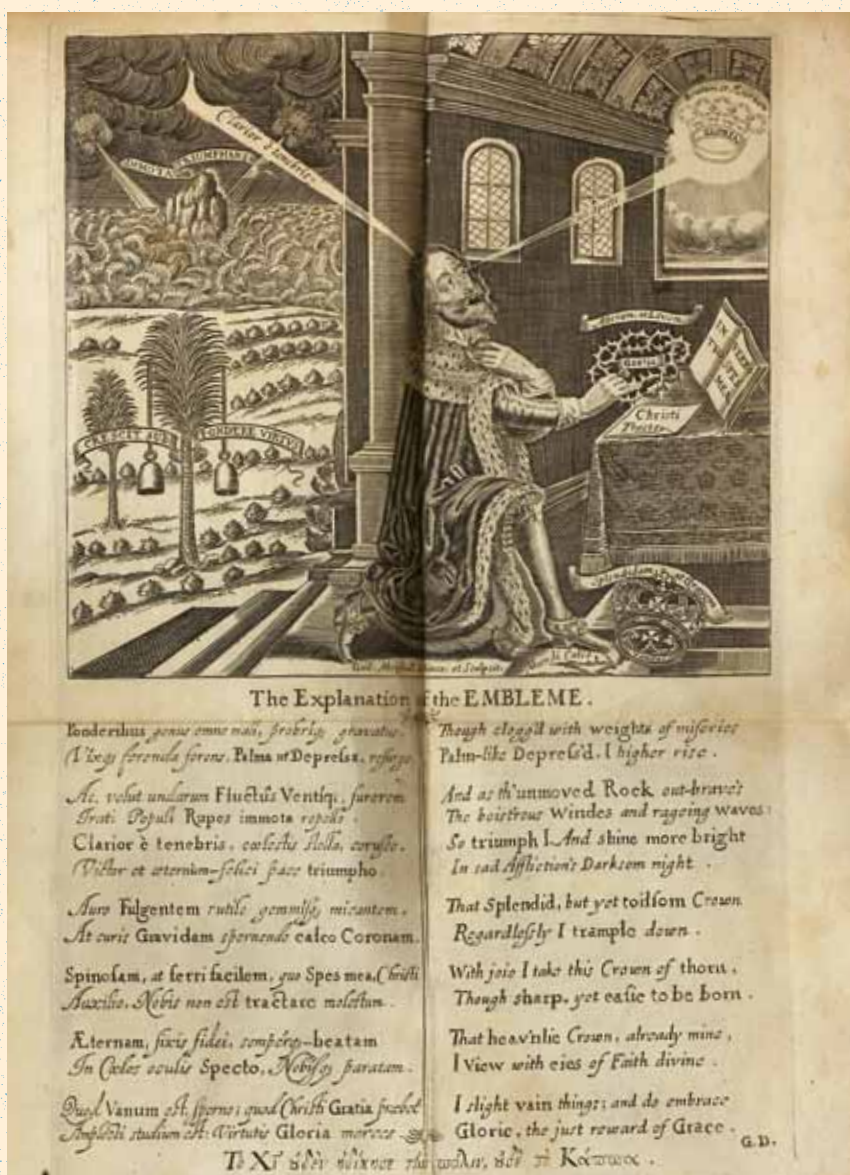 Clarior è tenebris.
IMMOTA TRIUMPHANS
CRESCIT SUB PONDERE VIRTVS
GLORIA
Asperam at Levem
GRATIA
IN VERBO TUO SPES MEA
Christi
Tracto
Splendidam at Gravem
The Explanation of the EMBLEME.
Ponderibus genus omne mali, probriq; gravatus,
Vixq; ferenda ferens, Palma ut Depressa, resurgo.
Ac, velut undarum Fluctûs Ventiq;, furorem
Irati Populi Rupes immota repello.
Clarior è tenebris, cœlestis stella, corusco.
Victor et æternùm-felici pace triumpho.
Auro Fulgentem rutilo gemmisq; micantem,
At curis Gravidam spernendo calco Coronam.
Spinosam, at ferri facilem, quo Spes mea, Christi
Auxilio, Nobis non est tractare molestum.
Æternam, fixis fidei, sempérq;-beatam
In Cœlos oculis Specto, Nobisq; paratam.
Quod Vanum est, sperno; quod Christi Gratia præbet
Amplecti studium est: Virtutis Gloria merces.
Though clogg'd with weights of miseries
Palm-like Depress'd, I higher rise.
And as th'unmoved Rock out-brave's
The boistrous Windes and rageing waves:
So triumph I. And shine more bright
In sad Affliction's Darksom night.
That Splendid, but yet toilsom Crown
Regardlessly I trample down.
With joie I take this Crown of thorn,
Though sharp, yet easie to be born.
That heav'nlie Crown, already mine,
I View with eies of Faith divine.
I slight vain things; and do embrace
Glorie, the just reward of Grace.
G.D.
Τὸ Χῖ ἐδὲν ἠδίκησε τὴν πόλιν, ἐδὲ τὸ Κάππα.